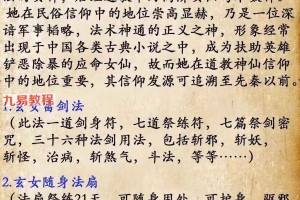 她在民俗信仰中的地位崇高显赫，乃是一位深
谙军事韬略，法术神通的正义之神，形象经常
出现于中国各类古典小说之中，成为扶助英雄
铲恶除暴的应命女仙，故而她在道教神仙信仰
中的地位重要，其信仰发源可追溯至先秦以前。
1.玄女雷剑法
（此法一道剑身符，七道祭练符，七篇祭剑密
咒，三十六种法剑用法，包括斩邪，斩妖，
斩怪，治病，斩煞气，斗法，等等……）
2.玄女随身法扇
九易教程